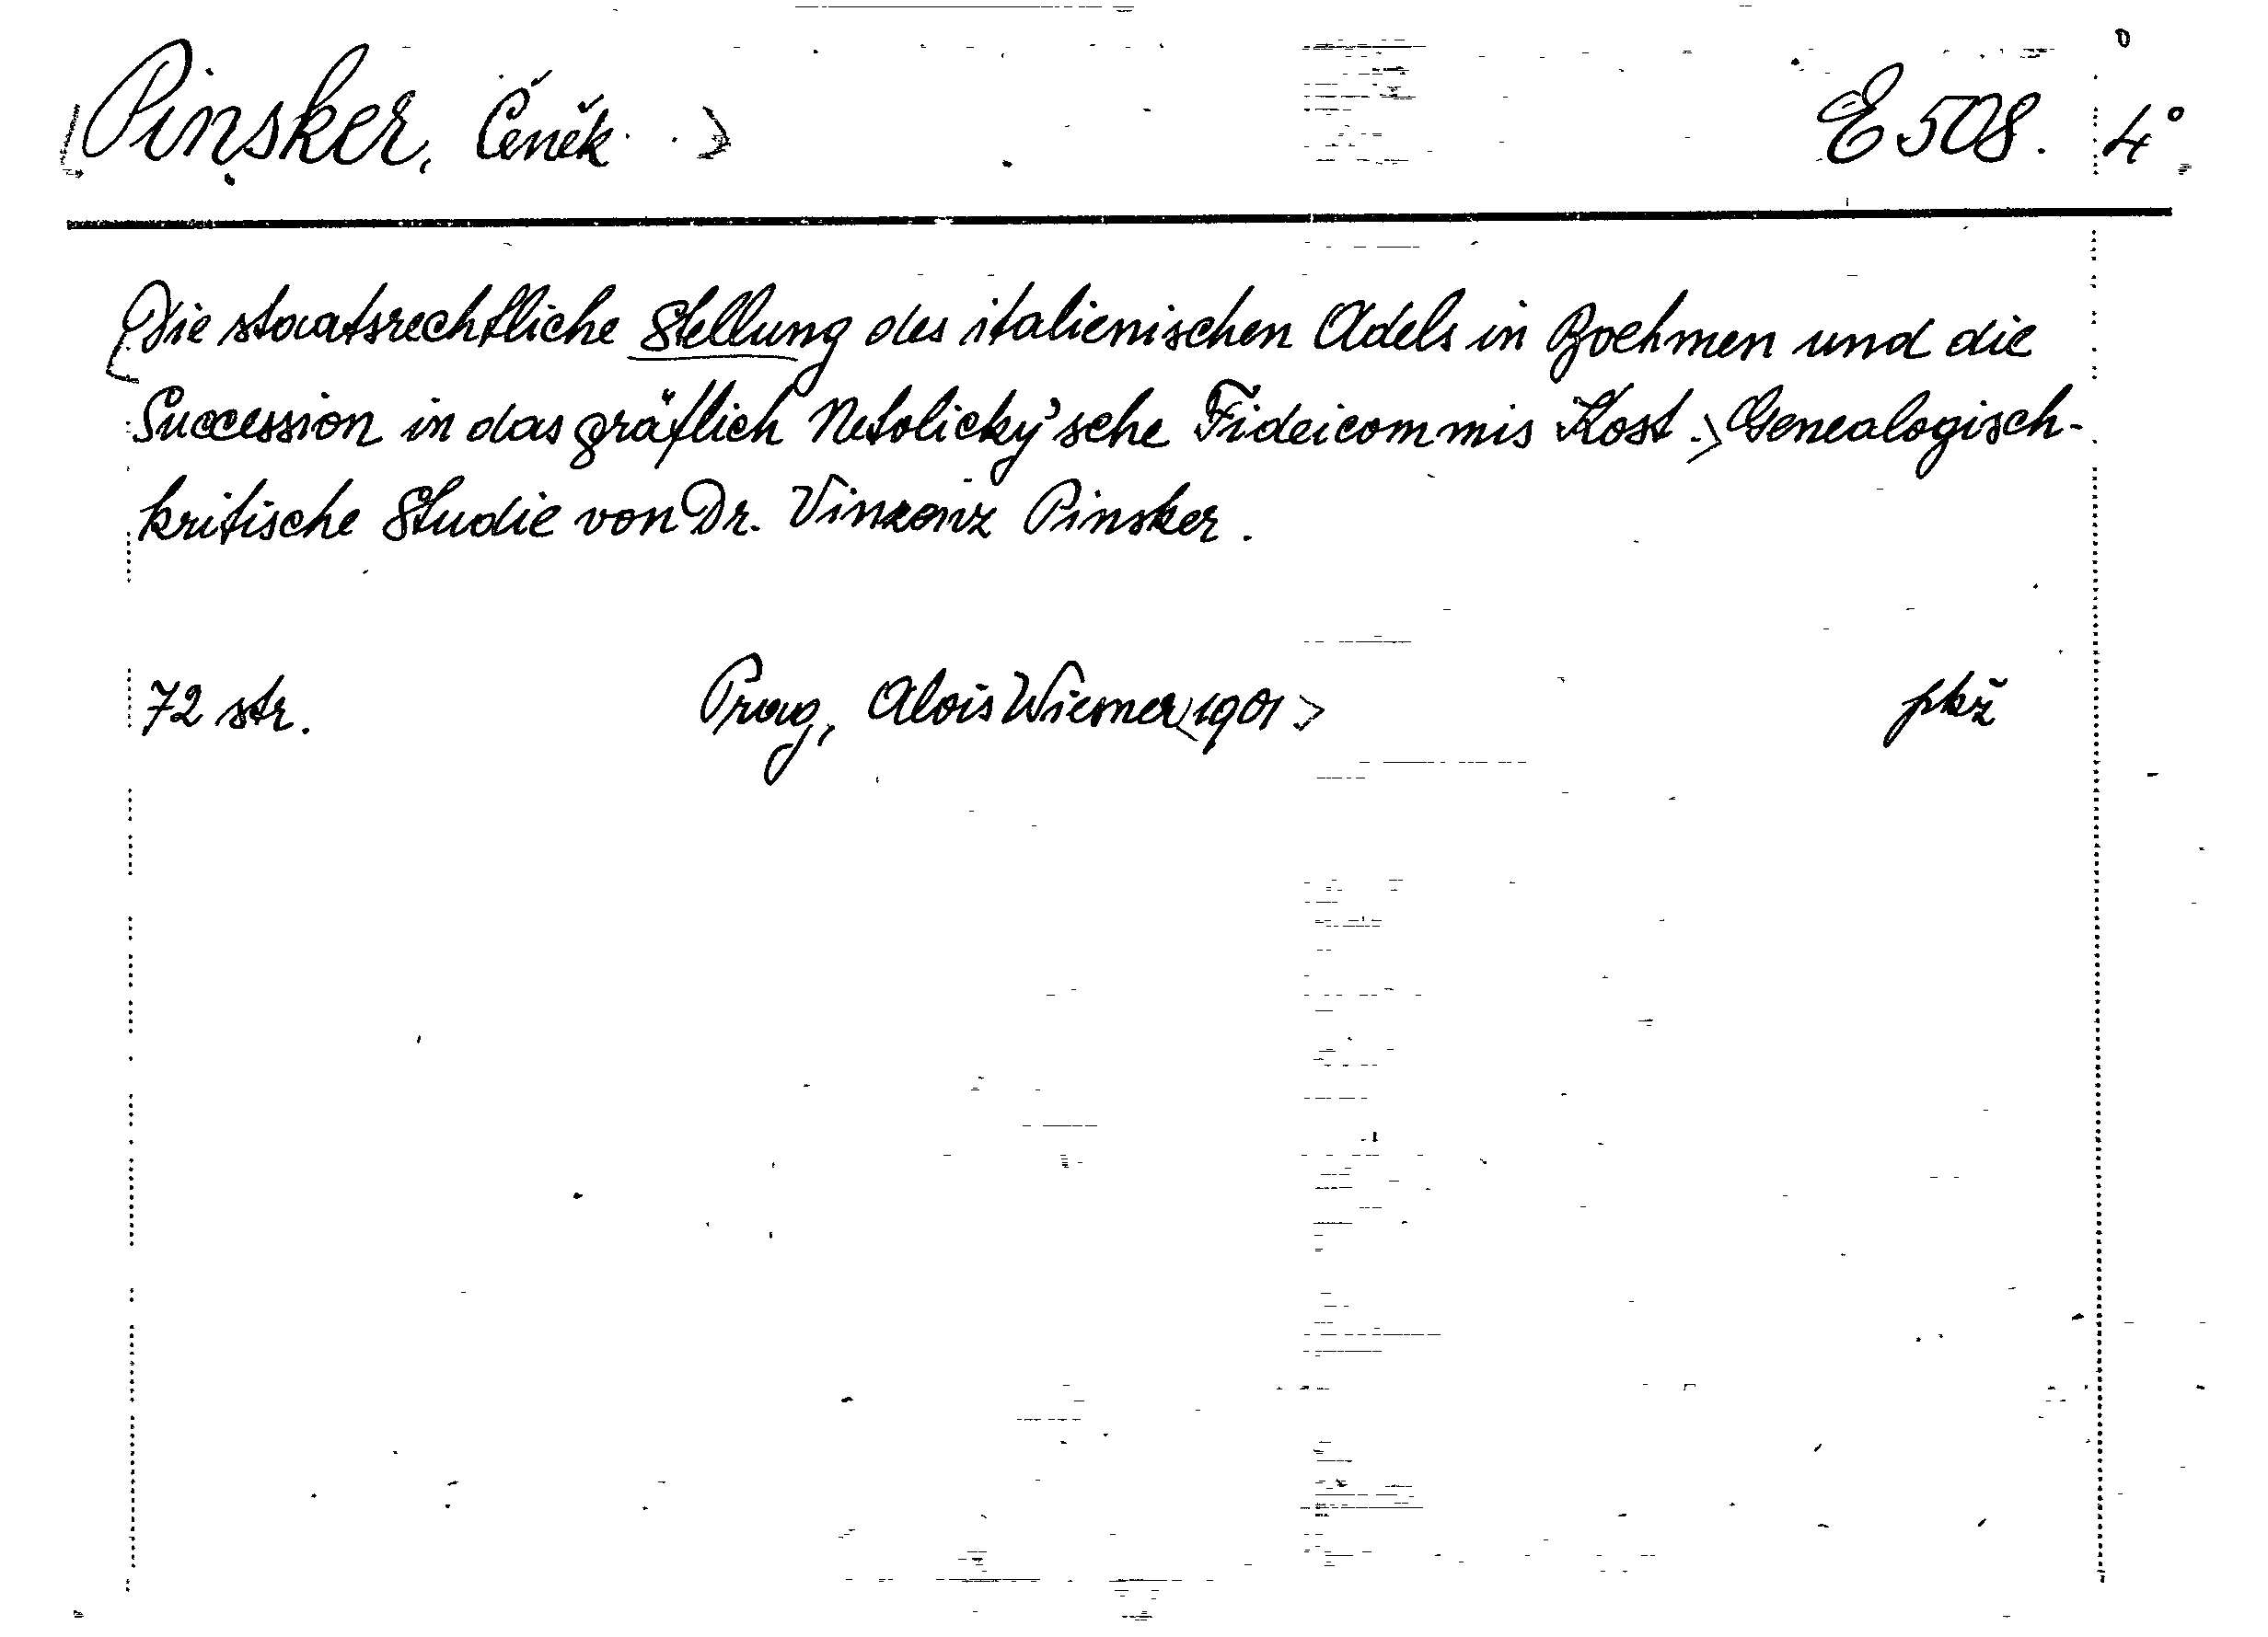 Pinsker, Čeněk E 508. 4°
Die staatsrechtliche Stellung des italienischen Adels in Boehmen und die
Succession in das gräflich Netolický'sche Fideicommis Kost. Genealogisch-
kritische Studie von Dr. Vinzenz Pinsker.
72 str. Prag, Alois Wiesner 1901 pkž